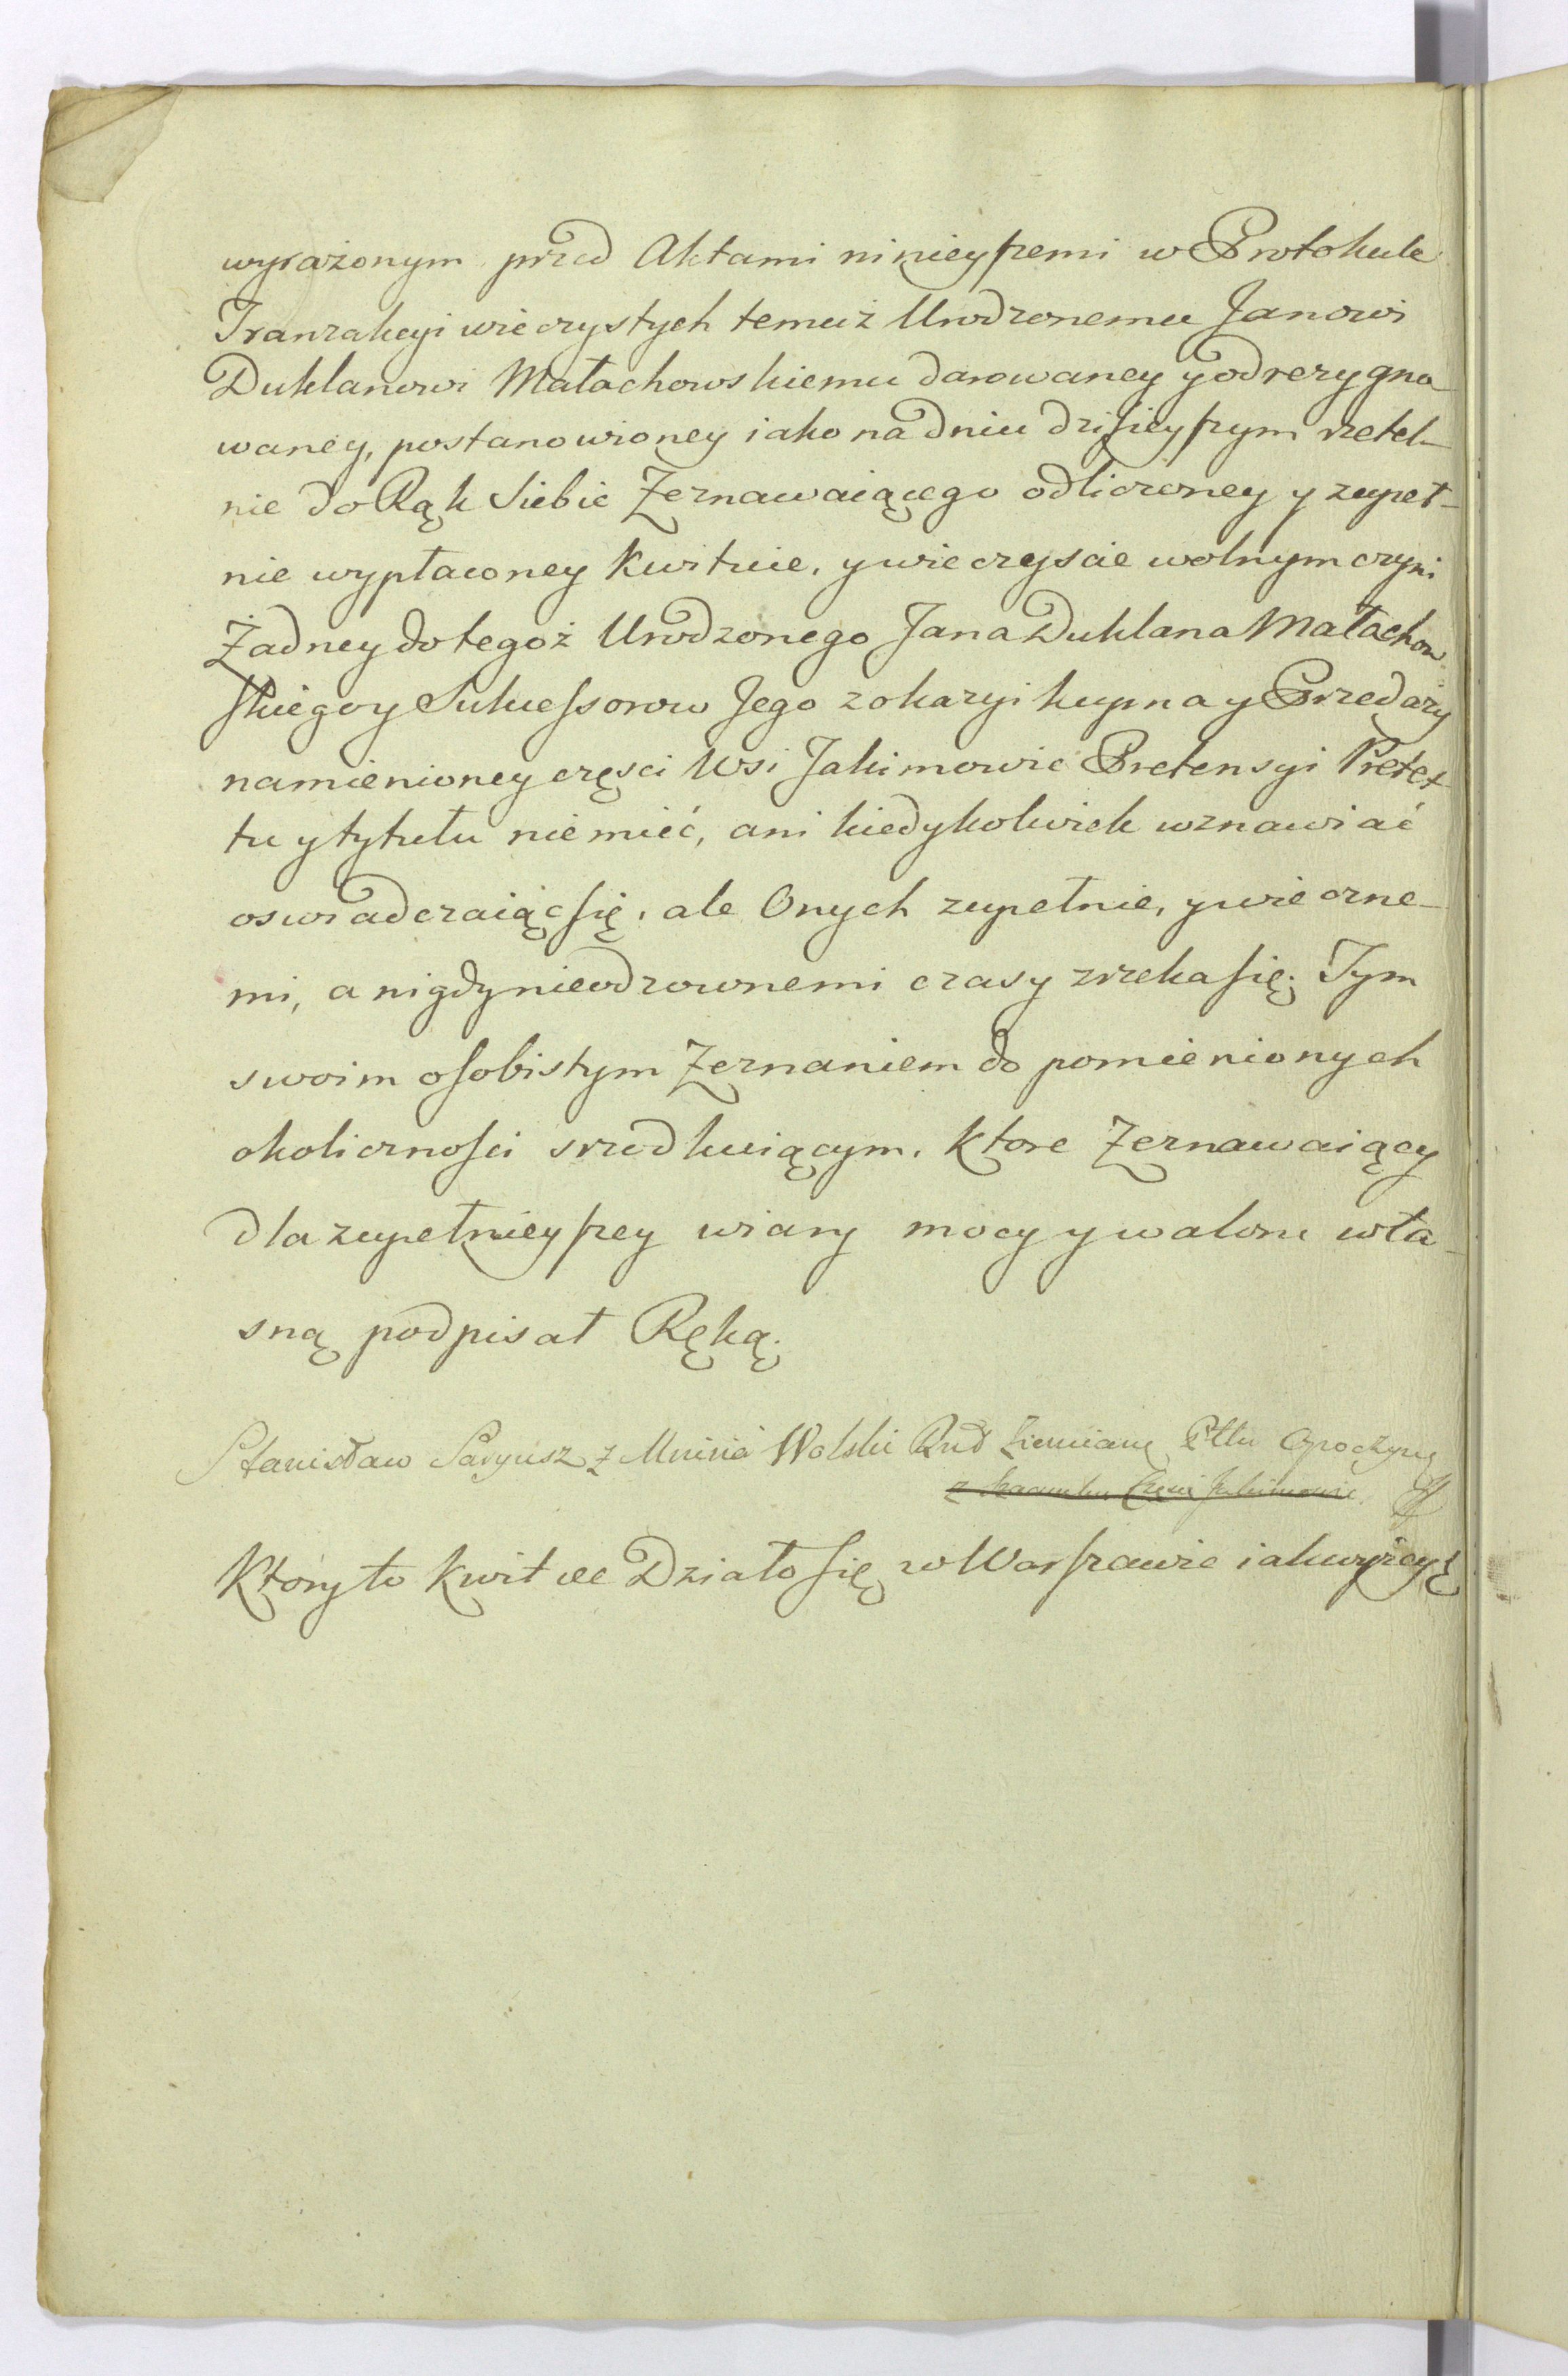 wyrażonym przed Aktami ninieyszemi w Protokule
Tranzakcyi wieczystych temuż Urodzonemu Janowi
Duklanowi Małachowskiemu darowaney y odrezygno-
waney, postanowioney iako na dniu dzisieyszym rzetel-
nie do Rąk Siebie Zeznawaiącego odliczoney y zupeł-
nie wypłaconey kwituie, y wieczyscie wolnym czyni
Żadney do tegoż Urodzonego Jana Duklana Małachow-
skiego y Sukcessorow Jego z okazyi kupna y Przedaży
namienioney części Wsi Jakimowic Pretensyi Pretex-
tu y tytułu niemieć, ani kiedykolwiek wznawiać
oswiadczaiąc się, ale Onych zupełnie, y wieczne-
mi, a nigdy nieodzownemi czasy zrzeka się. Tym
swoim osobistym Zeznaniem do pomienionych
okoliczności srzodkuiącym. Ktore Zeznawaiący
dla zupełnieyszey wiary mocy y waloru wła-
sną podpisał Ręką.
Stanisław Saryusz z Wolski Ziemianę Pttu Opoczyńs
Ktory to kwit &c Działo się w Warszawie iako wyżey